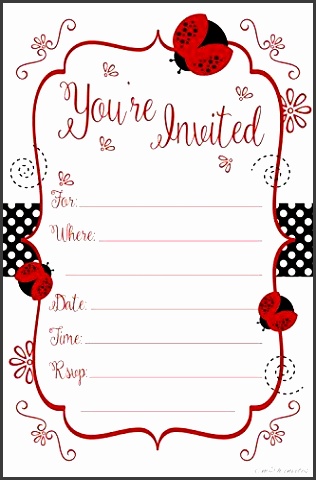 You're Invited
For:
Where:
Date:
Time:
Rsvp: